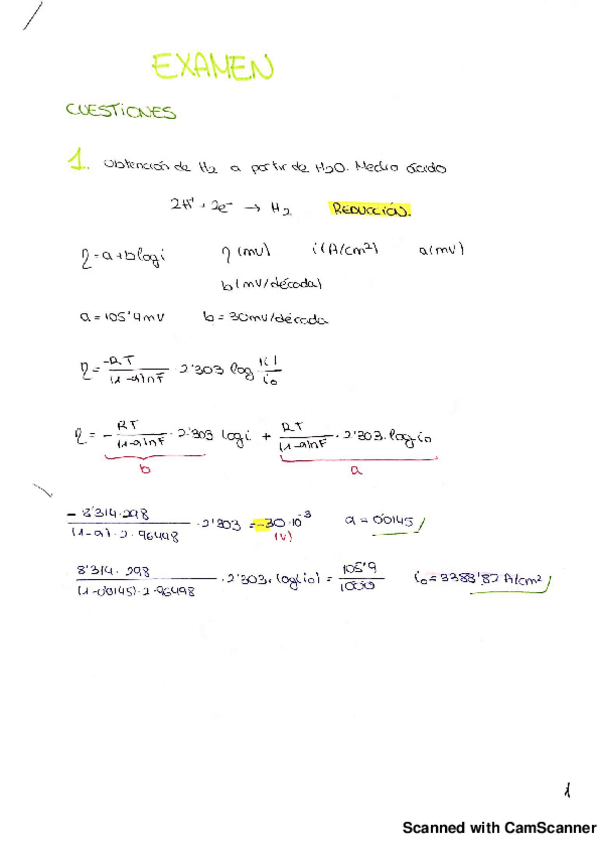 EXAMEN
CUESTIONES
1. Obtención de H2 a partir de H2O. Medio ácido
2H⁺ + 2e⁻ → H2 REDUCCIÓN.
η = a + b log i η (mV) i (A/cm²) a (mV)
b (mV/década)
a = 105'4 mV b = 30 mV/década
η = -RT/((1-α)nF) · 2'303 log |i|/i₀
η = - RT/((1-α)nF) · 2'303 log i + RT/((1-α)nF) · 2'303 · log i₀
b a
- 8'314·298/((1-α)·2·96498) · 2'303 = -30·10⁻³ α = 0'0145
(V)
8'314·298/((1-0'0145)·2·96498) · 2'303 · log(i₀) = 105'9/1000 i₀ = 3388'82 A/cm²
1
Scanned with CamScanner